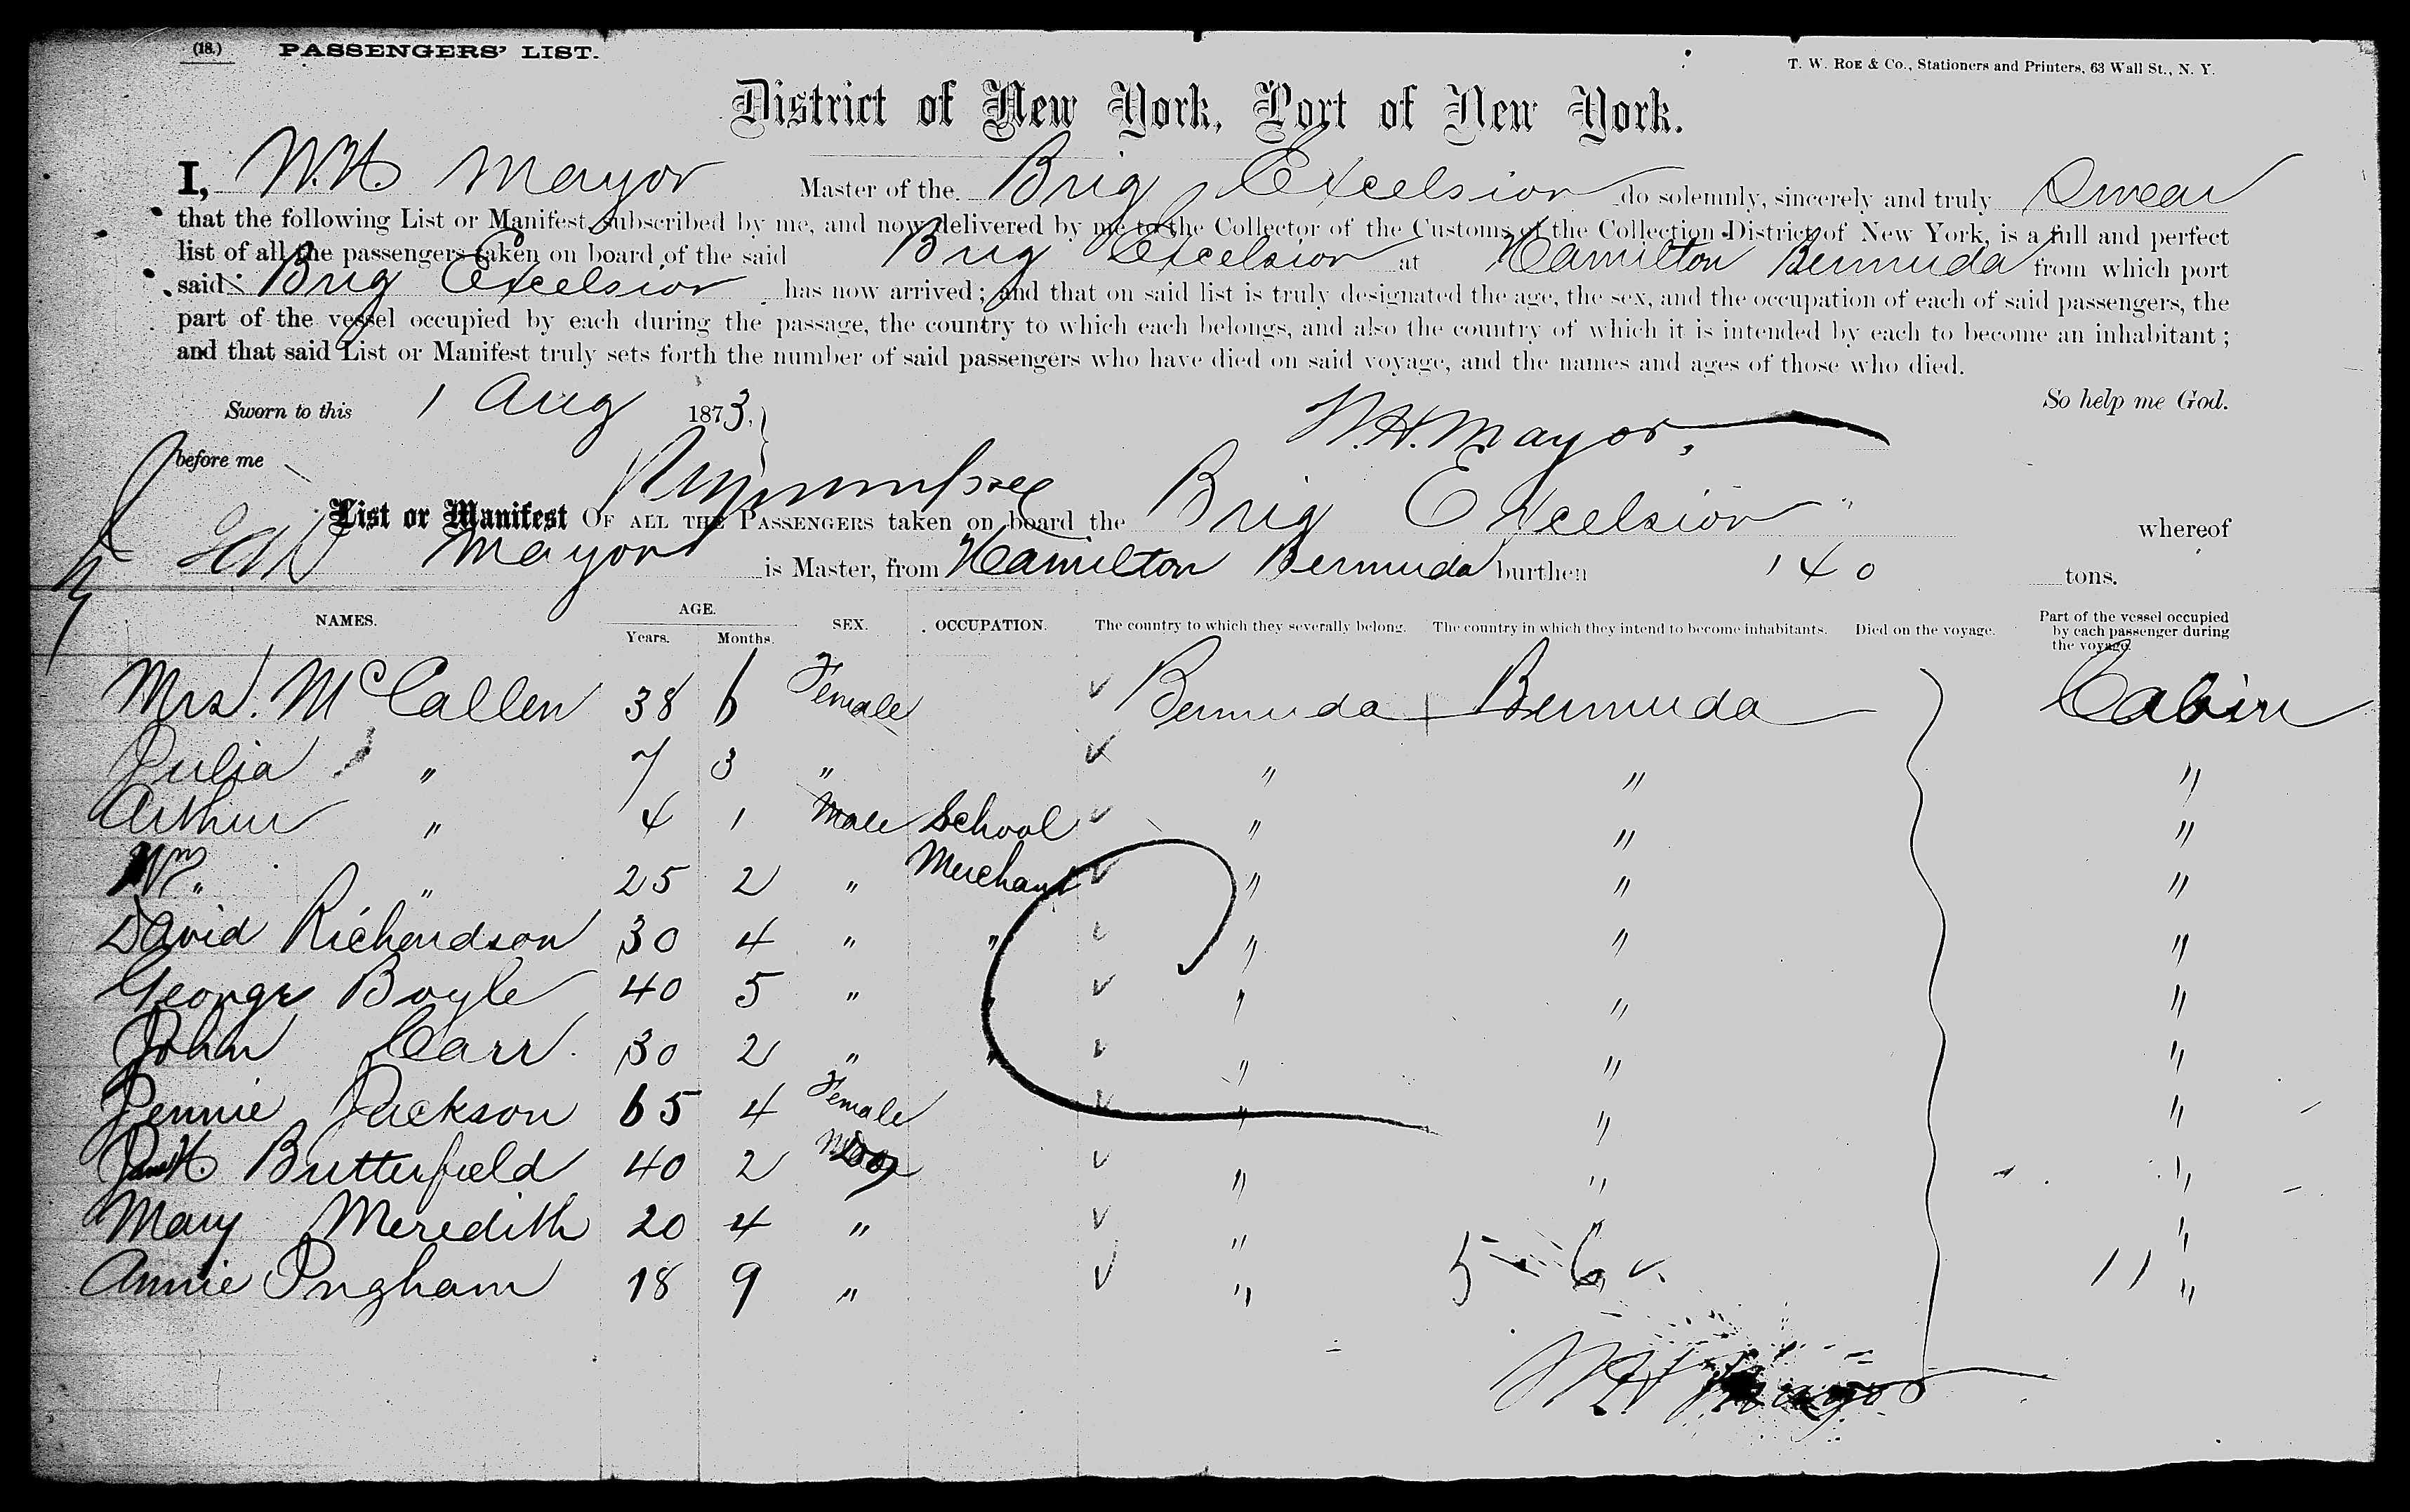 (18.) PASSENGERS' LIST.
T. W. ROE & Co., Stationers and Printers, 63 Wall St., N. Y.
District of New York, Port of New York.
I, W.H. Mayor Master of the Brig Excelsior do solemnly, sincerely and truly Swear
that the following List or Manifest, subscribed by me, and now delivered by me to the Collector of the Customs of the Collection District of New York, is a full and perfect
list of all the passengers taken on board of the said Brig Excelsior at Hamilton Bermuda from which port
said Brig Excelsior has now arrived; and that on said list is truly designated the age, the sex, and the occupation of each of said passengers, the
part of the vessel occupied by each during the passage, the country to which each belongs, and also the country of which it is intended by each to become an inhabitant;
and that said List or Manifest truly sets forth the number of said passengers who have died on said voyage, and the names and ages of those who died.
Sworn to this 1 Aug 1873, W.H. Mayor, So help me God.
before me
List or Manifest OF ALL THE PASSENGERS taken on board the Brig Excelsior " whereof
Mayor is Master, from Hamilton Bermuda burthen 140 tons.
NAMES. AGE. Years. Months. SEX. OCCUPATION. The country to which they severally belong. The country in which they intend to become inhabitants. Died on the voyage. Part of the vessel occupied by each passenger during the voyage.
Mrs. McCallen 38 6 Female Bermuda Bermuda Cabin
Julia " 7 3 " " " "
Arthur " 4 1 Male School " " "
Wm. " 25 2 " Merchant " " "
David Richardson 30 4 " " " " "
George Boyle 40 5 " " " " "
John Carr 30 2 " " " " "
Jennie Jackson 65 4 Female " " "
Butterfield 40 2 " " "
Mary Meredith 20 4 " " " "
Annie Ingham 18 9 " " 5 - 6 11 "
W H Mayor